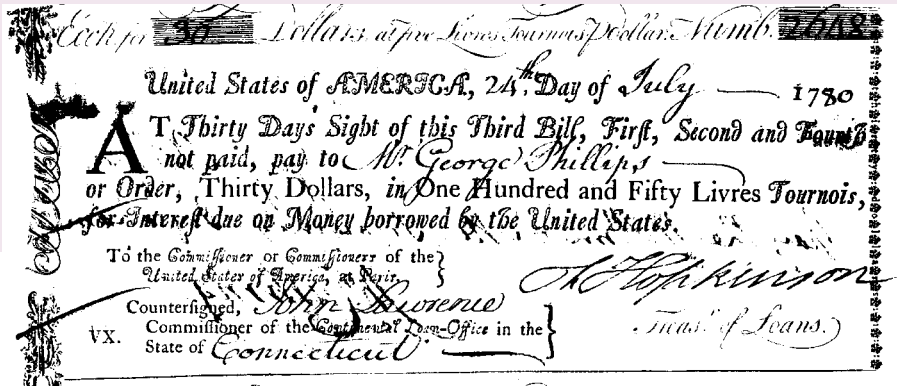 Exch for 30 Dollars, at five Livres Tournois P Dollar. Numb. 2668
United States of AMERICA, 24th. Day of July 1780
AT Thirty Days Sight of this Third Bill, First, Second and Fourth
not paid, pay to Mr George Phillips
or Order, Thirty Dollars, in One Hundred and Fifty Livres Tournois,
for Interest due on Money borrowed by the United States.
To the Commissioner or Commissioners of the
United States of America, at Paris.
Hopkinson
Countersigned, John Lawrence
Treasr. of Loans.
VX. Commissioner of the Continental Loan-Office in the
State of Connecticut.